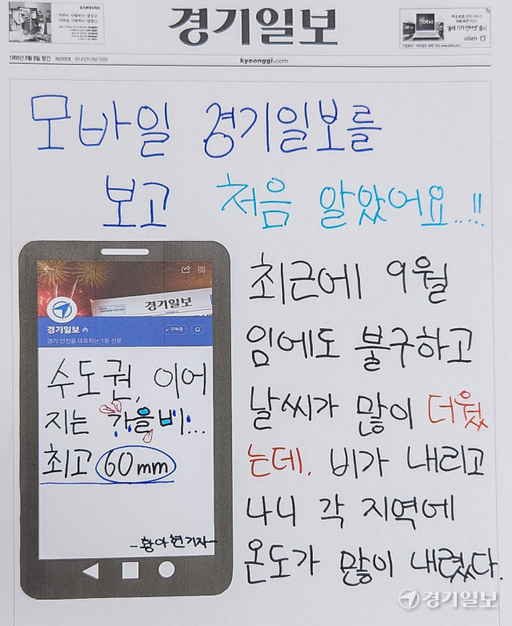 경기일보
kyeonggi.com
모바일 경기일보를
보고 처음 알았어요...!!
경기일보
경기일보
경기 인천을 대표하는 1등 신문
구독중
수도권, 이어
지는 가을비...
최고 60mm
-황아현기자-
최근에 9월
임에도 불구하고
날씨가 많이 더웠
는데, 비가 내리고
나니 각 지역에
온도가 많이 내렸다.
경기일보